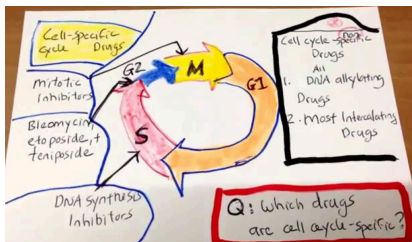 Cell-specific
cycle Drugs
Mitotic
Inhibitors
Bleomycin,
etoposide, +
teniposide
DNA Synthesis
Inhibitors
G2
M
G1
S
(none)
Cell cycle-specific
Drugs
All
1. DNA alkylating
Drugs
2. Most Intercalating
Drugs
Q: Which drugs
are cell cycle-specific?